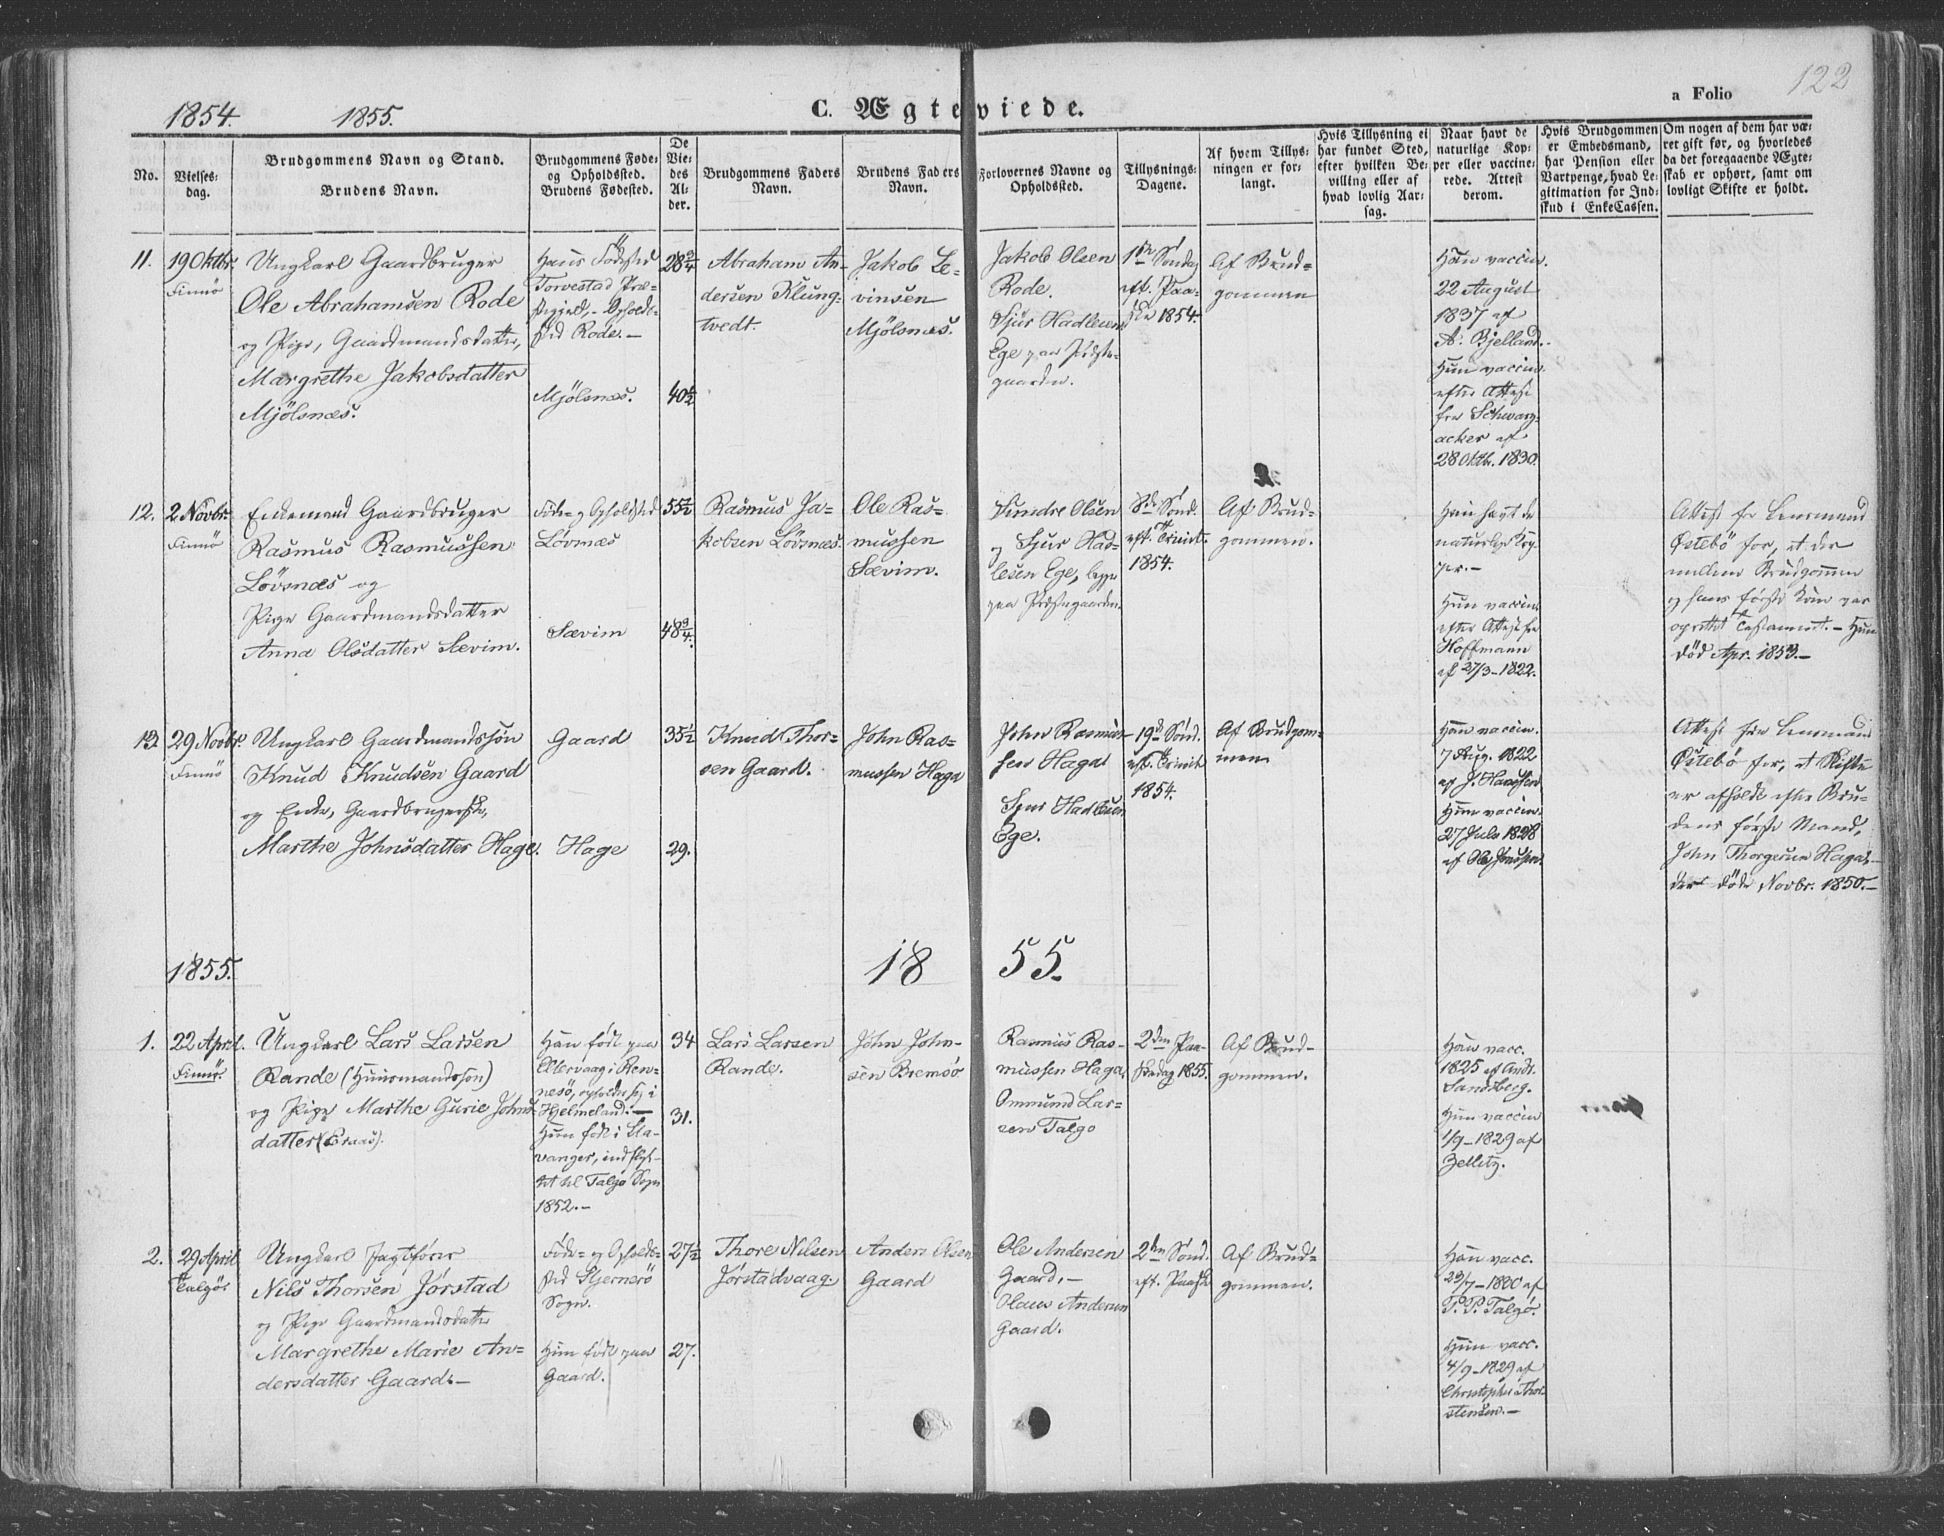 122
1854. 1855.
C. Ægteviede.
a Folio
No.
Vielses-
dag.
Brudgommens Navn og Stand.
Brudens Navn.
Brudgommens Føde-
og Opholdssted.
Brudens Fødested.
De
Vie-
des
Al-
der.
Brudgommens Faders
Navn.
Brudens Faders
Navn.
Forlovernes Navne og
Opholdssted.
Tillysnings-
Dagene.
Af hvem Tillys-
ningen er for-
langt.
Hvis Tillysning ei
har fundet Sted,
efter hvilken Be-
villing eller af
hvad lovlig Aar-
sag.
Naar havt de
naturlige Kop-
per eller vaccine-
rede. Attest
derom.
Hvis Brudgommen
er Embedsmand,
har Pension eller
Vartpenge, hvad Le-
gitimation for Ind-
skud i EnkeCassen.
Om nogen af dem har væ-
ret gift før, og hvorledes
da det foregaaende Ægte-
skab er ophørt, samt om
lovligt Skifte er holdt.
11.
19 Oktbr.
Finnö
Ungkarl Gaardbruger
Ole Abrahamsen Rode
og Pige, Gaardmandsdatter,
Margrethe Jakobsdatter
Mjölsnæs.
Hans Födested
Torvestad Præ-
stegjeld, - Opholds-
sted Rode. -
Mjölsnæs.
28 3/4
40 1/2
Abraham An-
dersen Klung-
tvedt.
Jakob Le-
vinsen
Mjölsnæs.
Jakob Olsen
Rode.
Sjur Hadlesen
Ege paa Præste-
gaarden.
1ste Söndag
eft. Paa-
ske 1854.
Af Brud-
gommen
Han vaccin.
22 August
1837 af
A. Bjelland.
Hun vaccin.
efter Attest
fra Schwarz-
acker af
28 Oktb. 1830.
12.
2 Novbr.
Finnö
Enkemand Gaardbruger
Rasmus Rasmussen
Lövsnæs og
Pige Gaardmandsdatter
Anna Olsdatter Sævim.
Föde- og Opholdsted
Lövnæs
Sævim
55 1/2
48 3/4.
Rasmus Ja-
kobsen Lövsnæs.
Ole Ras-
mussen
Sævim.
Sundre Olsen
og Sjur Had-
lesen Ege, begge
paa Præstegaarden.
8de Sönd.
eft. Trinit.
1854.
Af Brud-
gommen.
Han havt de
naturlige Kop-
per. -
Hun vaccin.
efter Attest fra
Hoffmann
af 27/3 - 1822.
Attest fra Lensmand
Östebö for, at der
mellem Brudgommen
og hans förste Kone var
oprettet Testament. - Hun
död Apr. 1853. -
13
29 Novbr.
Finnö
Ungkarl Gaardmandssön
Knud Knudsen Gaard
og Enke, Gaardbrugerske,
Marthe Johnsdatter Hage.
Gaard
Hage
35 1/2
29.
Knud Thor-
sen Gaard.
John Ras-
mussen Haga
John Rasmus-
sen Haga
Sjur Hadlesen
Ege.
19de Sönd.
eft. Trinit.
1854.
Af Brudgom-
men
Han vaccin.
7 Aug. 1822
af J. Haassen
Hun vaccin.
27 Juli 1828
af
Attest fra Lensmand
Östebö for, at Skifte
er afholdt efter Bru-
dens förste Mand,
John Thorgersen Haga,
der döde Novbr. 1850. -
1855. 18 55.
1.
22 April.
Finnö.
Ungkarl Lars Larsen
Rande (Huusmandssön)
og Pige Marthe Gurie Johns-
datter (Braas).
Han födt paa
Ellervaag i Ren-
nesö, opholder sig i
Hjelmeland. -
Hun födt i Sta-
vanger, indflyt-
tet til Talgö Sogn
1852. -
34
31.
Lars Larsen
Rande.
John John-
sen Bremsö
Rasmus Ras-
mussen Haga
Ommund Lar-
sen Talgö
2den Paa-
skedag 1855.
Af Brud-
gommen.
Han vacc.
1825 af Andr.
Sandberg.
Hun vaccin
1/9 - 1829 af
Zellitz.
2.
29 April
Talgö.
Ungkarl Jagtförer
Nils Thorsen Jörstad
og Pige Gaardmandsdatter
Margrethe Marie An-
dersdatter Gaard. -
Föde- og Opholds-
sted Hjernerö
Sogn.
Hun födt paa
Gaard.
27 1/2
27.
Thore Nilsen
Jörstadvaag.
Anders Olsen
Gaard
Ole Andersen
Gaard, -
Claus Andersen
Gaard.
2den Sönd.
eft. Paaske
Af Brud-
gommen.
Han vacc.
af
T. P. Talgö.
Hun vacc.
4/9 - 1829 af
Christopher Thor-
stensen. -